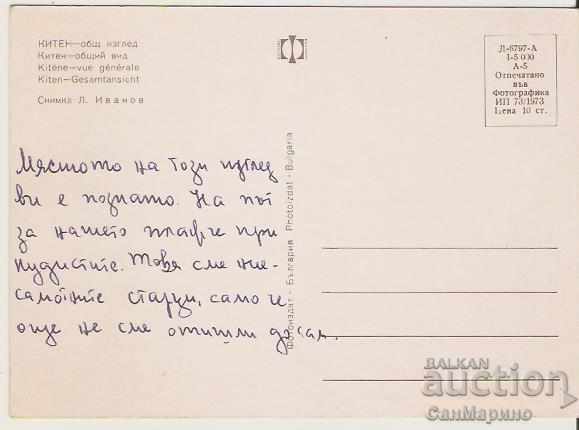 КИТЕН—общ изглед
Китен—общий вид
Kitène—vue générale
Kiten—Gesamtansicht
Снимка Л. Иванов
Д-6797-А
1-5 000
А-5
Отпечатано
във
Фотографика
ИП 73/1973
Цена 10 ст.
Мястото на този изглед
ви е познато. На път
за нашето плажче при
нудистите. Това сме ние-
самотните старци, само че
още не сме отишли
Фотоиздат - България Photoizdat - Bulgaria
BALKAN
auction
СанМарино